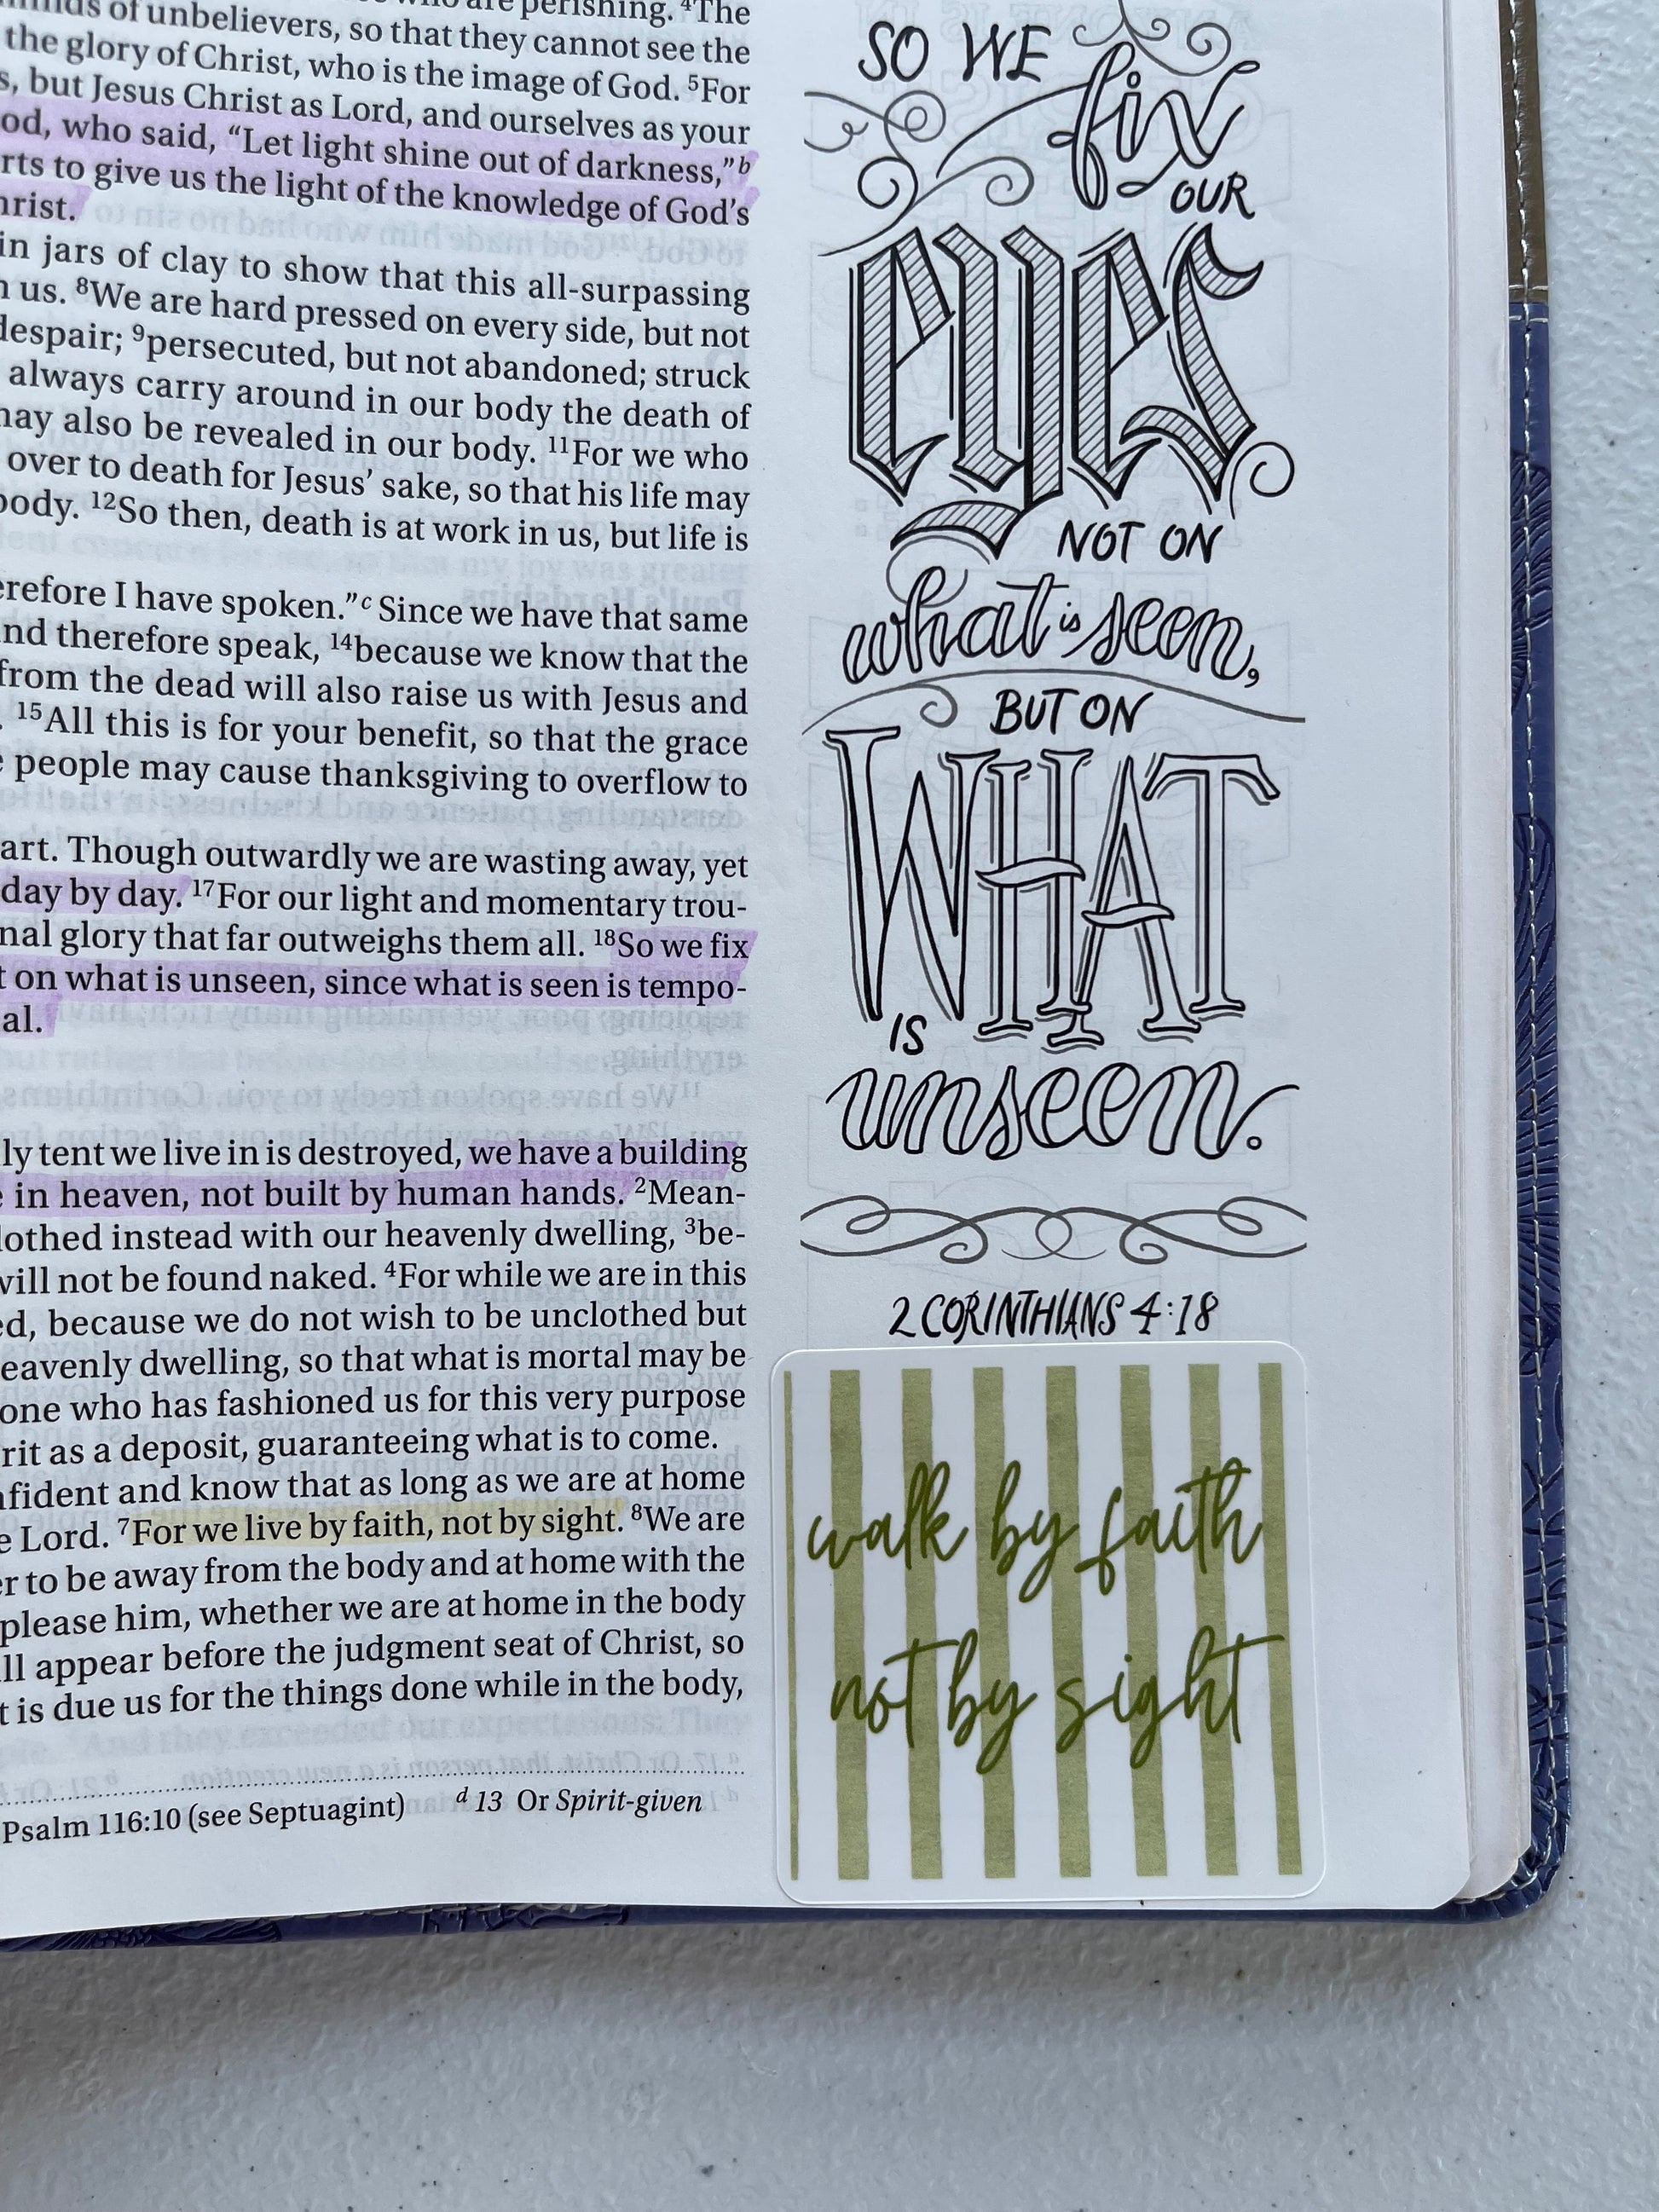 who are perishing. ⁴The
minds of unbelievers, so that they cannot see the
the glory of Christ, who is the image of God. ⁵For
s, but Jesus Christ as Lord, and ourselves as your
od, who said, “Let light shine out of darkness,”b
rts to give us the light of the knowledge of God’s
hrist.
in jars of clay to show that this all-surpassing
n us. ⁸We are hard pressed on every side, but not
despair; ⁹persecuted, but not abandoned; struck
always carry around in our body the death of
may also be revealed in our body. ¹¹For we who
over to death for Jesus’ sake, so that his life may
body. ¹²So then, death is at work in us, but life is
erefore I have spoken.”c Since we have that same
nd therefore speak, ¹⁴because we know that the
from the dead will also raise us with Jesus and
. ¹⁵All this is for your benefit, so that the grace
e people may cause thanksgiving to overflow to
art. Though outwardly we are wasting away, yet
day by day. ¹⁷For our light and momentary trou-
nal glory that far outweighs them all. ¹⁸So we fix
t on what is unseen, since what is seen is tempo-
al.
ly tent we live in is destroyed, we have a building
e in heaven, not built by human hands. ²Mean-
lothed instead with our heavenly dwelling, ³be-
will not be found naked. ⁴For while we are in this
ed, because we do not wish to be unclothed but
eavenly dwelling, so that what is mortal may be
one who has fashioned us for this very purpose
rit as a deposit, guaranteeing what is to come.
nfident and know that as long as we are at home
e Lord. ⁷For we live by faith, not by sight. ⁸We are
er to be away from the body and at home with the
please him, whether we are at home in the body
ll appear before the judgment seat of Christ, so
t is due us for the things done while in the body,
Psalm 116:10 (see Septuagint) d 13 Or Spirit-given
SO WE
fix
OUR
eyes
NOT ON
what is seen,
BUT ON
WHAT
IS
unseen.
2 CORINTHIANS 4:18
walk by faith
not by sight